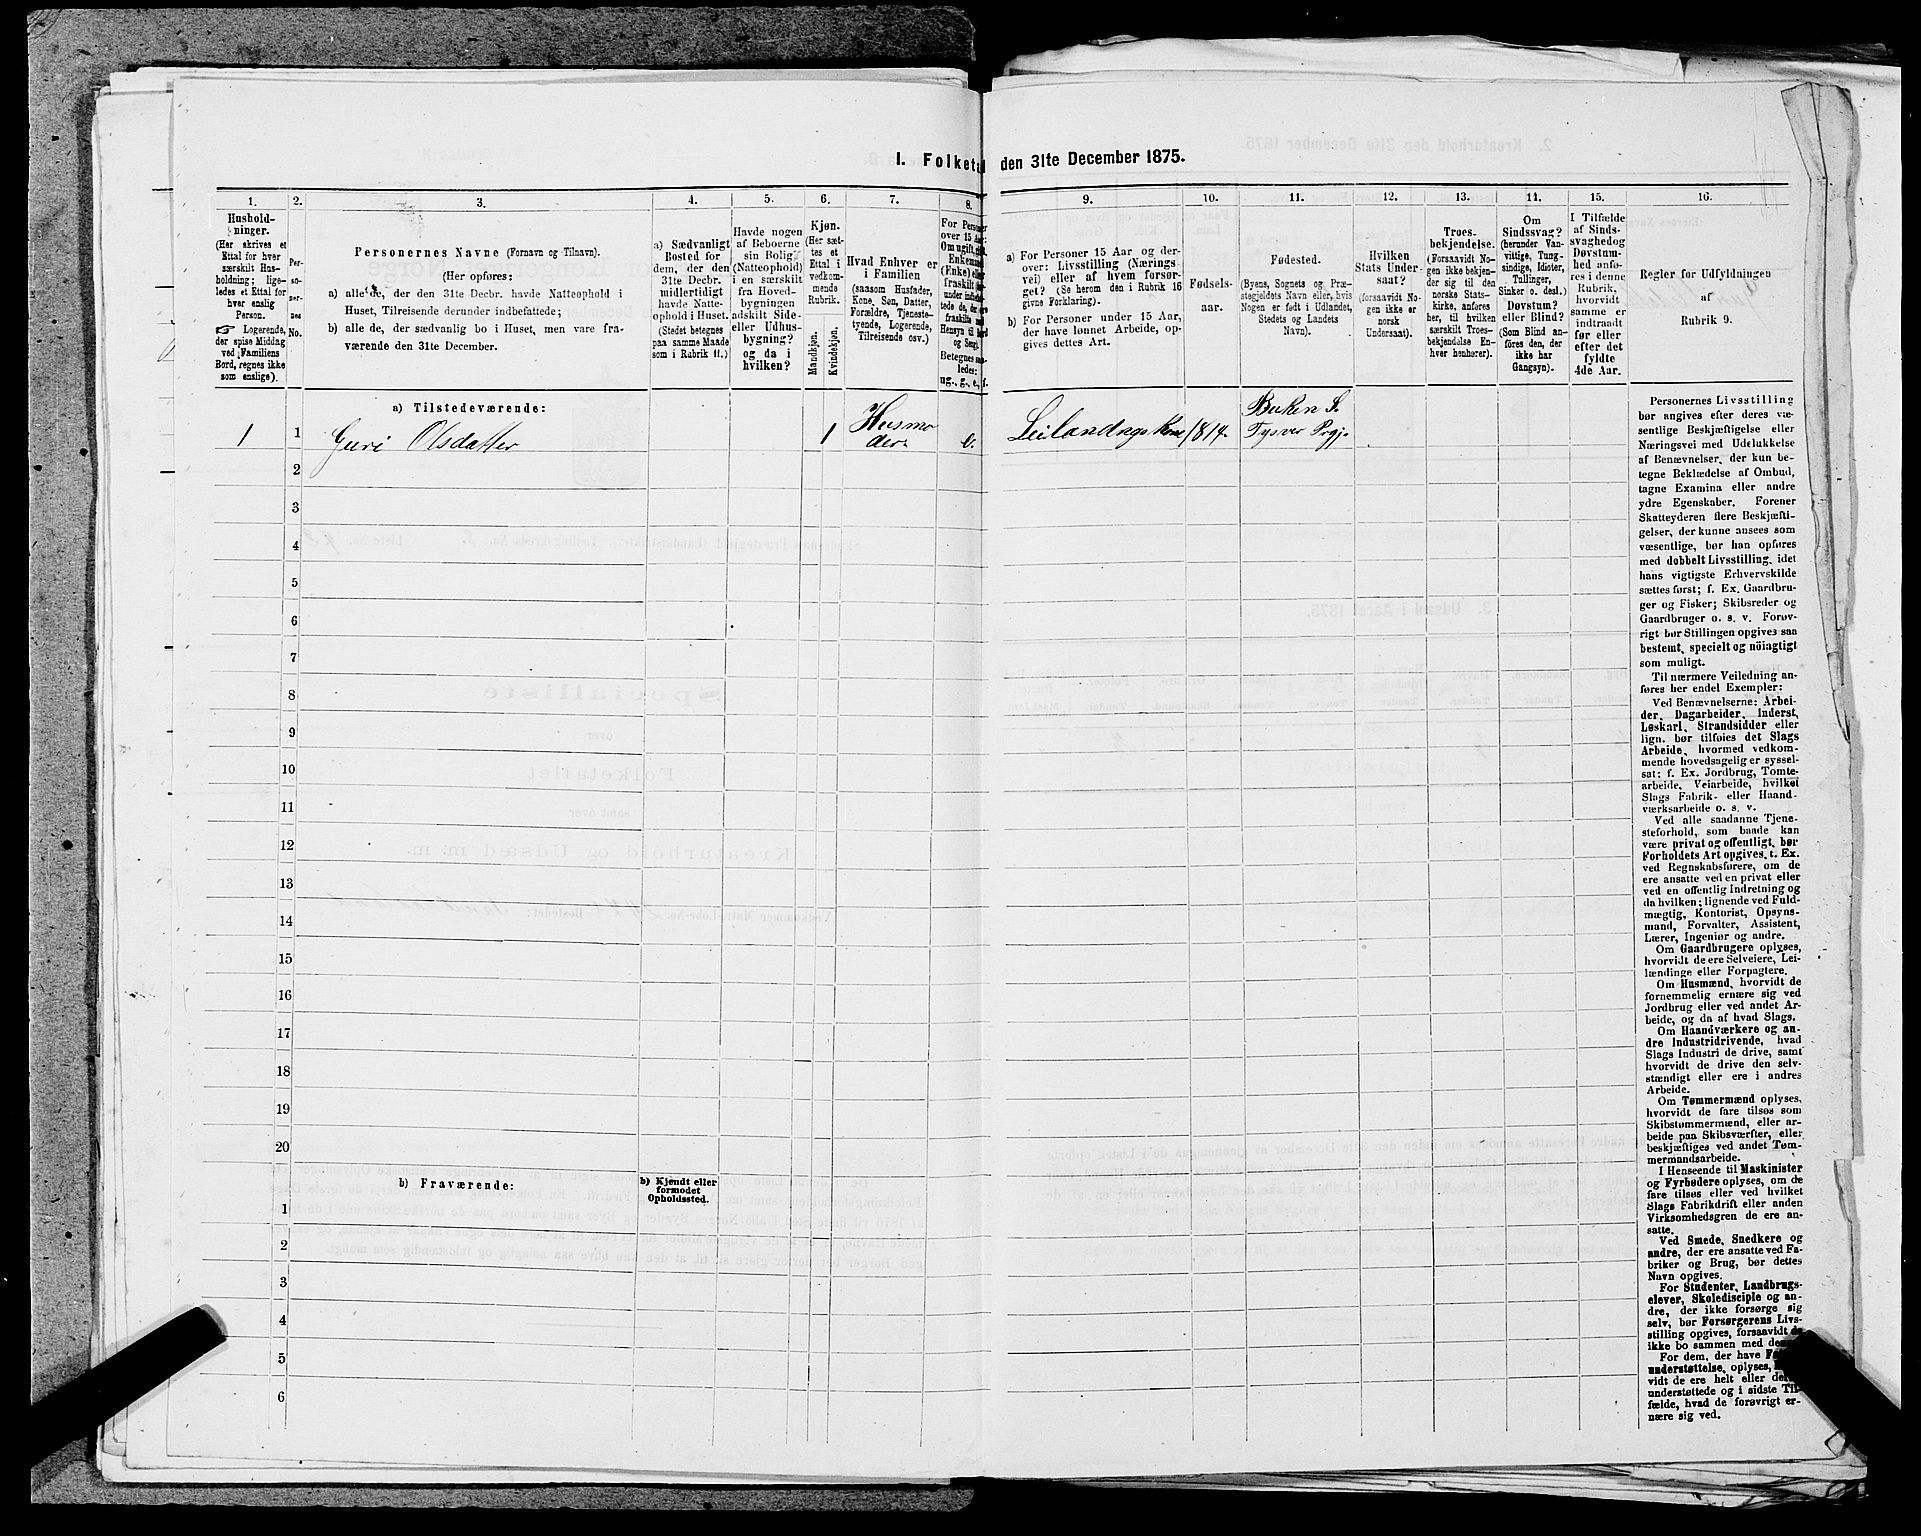 1. Folketal den 31te December 1875.
1.
Hushold-
ninger.
(Her skrives et
Ettal for hver
særskilt Hus-
holdning; lige-
ledes et Ettal for
hver enslig
Person.
☞ Logerende,
der spise Middag
ved Familiens
Bord, regnes ikke
som enslige).
2.
Per-
so-
ner-
nes
No.
3.
Personernes Navne (Fornavn og Tilnavn).
(Her opføres:
a) alle de, der den 31te Decbr. havde Natteophold i
Huset, Tilreisende derunder indbefattede;
b) alle de, der sædvanlig bo i Huset, men vare fra-
værende den 31te December.
4.
a) Sædvanligt
Bosted for
dem, der den
31te Decbr.
midlertidigt
havde Natte-
ophold i Huset.
(Stedet betegnes
paa samme Maade
som i Rubrik 11.)
5.
Havde nogen
af Beboerne
sin Bolig
(Natteophold)
i en særskilt
fra Hoved-
bygningen
adskilt Side-
eller Udhus-
bygning?
og da i
hvilken?
6.
Kjøn.
(Her sæt-
tes et
Ettal i
vedkom-
mende
Rubrik.
Mandkjøn.
Kvindekjøn.
7.
Hvad Enhver er
i Familien
(saasom Husfader,
Kone, Søn, Datter,
Forældre, Tjeneste-
tyende, Logerende,
Tilreisende osv.)
8.
For Personer
over 15 Aar:
Om ugift,
Enkemand
(Enke) eller
fraskilt
Betegnes
ledes:
ug., g., e., f.
9.
a) For Personer 15 Aar og der-
over: Livsstilling (Nærings-
vei) eller af hvem forsør-
get? (Se herom den i Rubrik 16
givne Forklaring).
b) For Personer under 15 Aar,
der have lønnet Arbeide, op-
gives dettes Art.
10.
Fødsels-
aar.
11.
Fødested.
(Byens, Sognets og Præ-
stegjeldets Navn eller, hvis
Nogen er født i Udlandet,
Stedets og Landets
Navn).
12.
Hvilken
Stats Under-
saat?
(forsaavidt No-
gen ikke er
norsk
Undersaat).
13.
Troes-
bekjendelse.
(Forsaavidt No-
gen ikke bekjen-
der sig til den
norske Stats-
kirke, anføres
her, til hvilken
særskilt Troes-
bekjendelse En-
hver henhører).
14.
Om
Sindssvag?
(herunder Van-
vittige, Tung-
sindige, Idioter,
Tullinger,
Sinker o. desl.)
Døvstum?
eller Blind?
(Som Blind an-
føres den, der
ikke har
Gangsyn).
15.
I Tilfælde
af Sinds-
svaghed og
Døvstum-
hed anfø-
res i denne
Rubrik,
hvorvidt
samme er
indtraadt
før eller
efter det
fyldte
4de Aar.
16.
Regler for Udfyldningen
af
Rubrik 9.
a) Tilstedeværende:
1 1 Guri Olsdatter 1 Husmo
der. e. Leilændings Kone 1814. Bukken S.
Tysvær Prgj.
2
3
4
5
6
7
8
9
10
11
12
13
14
15
16
17
18
19
20
b) Fraværende:
b) Kjendt eller
formodet
Opholdssted.
1
2
3
4
5
6
Personernes Livsstilling
bør angives efter deres væ-
sentlige Beskjæftigelse eller
Næringsvei med Udelukkelse
af Benævnelser, der kun be-
tegne Beklædelse af Ombud,
tagne Examina eller andre
ydre Egenskaber. Forener
Skatteyderen flere Beskjæfti-
gelser, der kunne ansees som
væsentlige, bør han opføres
med dobbelt Livsstilling, idet
hans vigtigste Erhvervskilde
sættes først; f. Ex. Gaardbru-
ger og Fisker; Skibsreder og
Gaardbruger o. s. v. Forøv-
rigt bør Stillingen opgives saa
bestemt, specielt og nöiagtigt
som muligt.
Til nærmere Veiledning an-
føres her endel Exempler:
Ved Benævnelserne: Arbei-
der, Dagarbeider, Inderst,
Løskarl, Strandsidder eller
lign. bør tilføies det Slags
Arbeide, hvormed vedkom-
mende hovedsagelig er syssel-
sat: f. Ex. Jordbrug, Tomte-
arbeide, Veiarbeide, hvilket
Slags Fabrik- eller Haand-
værksarbeide o. s. v.
Ved alle saadanne Tjene-
steforhold, som baade kan
være privat og offentligt, bør
Forholdets Art opgives, t. Ex.
ved Regnskabsførere, om de
ere ansatte ved en privat eller
ved en offentlig Indretning og
da hvilken; lignende ved Fuld-
mægtig, Kontorist, Opsyns-
mand, Forvalter, Assistent,
Lærer, Ingeniør og andre.
Om Gaardbrugere oplyses,
hvorvidt de ere Selveiere, Lei-
lændinge eller Forpagtere.
Om Husmænd, hvorvidt de
fornemmelig ernære sig ved
Jordbrug eller ved andet Ar-
beide, og da af hvad Slags.
Om Haandværkere og an-
dre Industridrivende, hvad
Slags Industri de drive, samt
hvorvidt de drive den selv-
stændigt eller ere i andres
Arbeide.
Om Tømmermænd oplyses,
hvorvidt de fare tilsøs som
Skibstømmermænd, eller ar-
beide paa Skibsværfter, eller
beskjæftiges ved andet Tøm-
mermandsarbeide.
I Henseende til Maskinister
og Fyrbødere oplyses, om de
fare tilsøs eller ved hvilket
Slags Fabrikdrift eller anden
Virksomhedsgren de ere an-
satte.
Ved Smede, Snedkere og
andre, der ere ansatte ved Fa-
briker og Brug, bør dettes
Navn opgives.
For Studenter, Landbrugs-
elever, Skoledisciple og an-
dre, der ikke forsørge sig
selv, bør Forsørgerens Livs-
stilling opgives, forsaavidt de
ikke bo sammen med
For dem, der have
understøttelse, oplyses,
vidt de ere helt eller
understøttede og i sidste Til-
fælde, hvad de forøvrigt er-
nære sig ved.